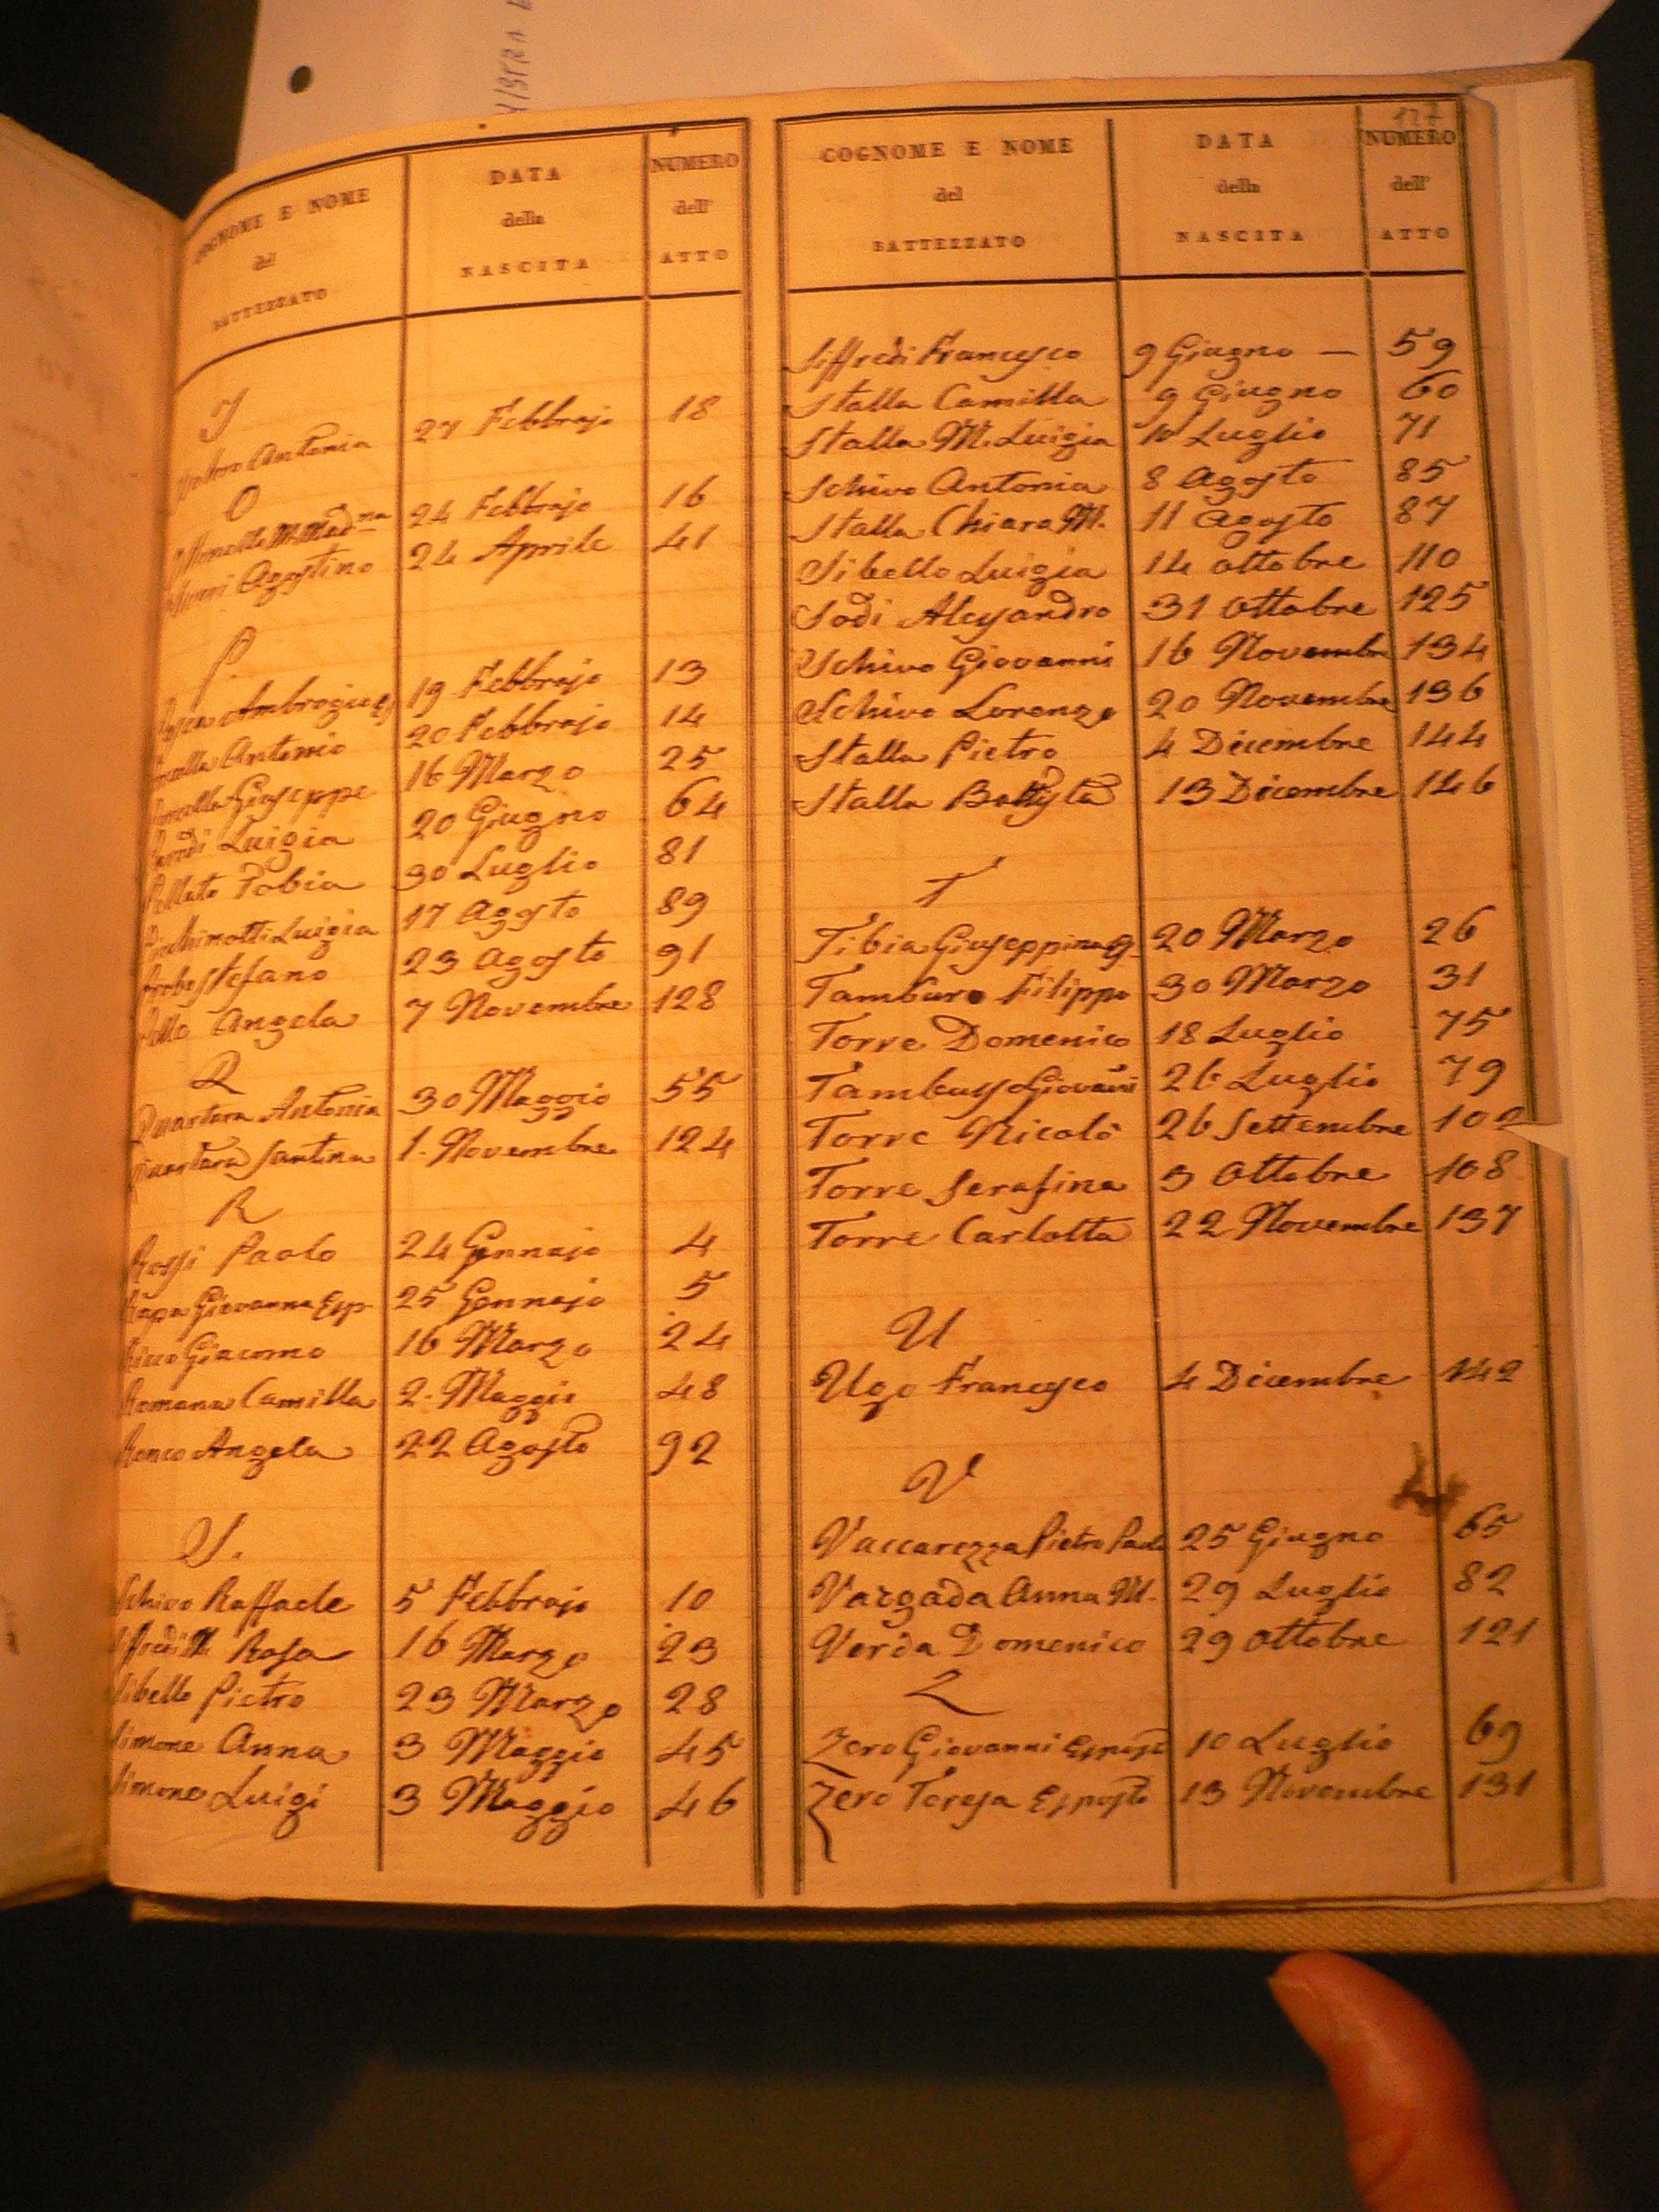 COGNOME E NOME
del
BATTEZZATO
DATA
della
NASCITA
NUMERO
dell'
ATTO
Antonia 27 Febbrajo 18
O
24 Febbrajo 16
Agostino 24 Aprile 41
P.
Ambrogio 19 Febbrajo 13
Antonio 20 Febbrajo 14
Giuseppe 16 Marzo 25
Parodi Luigia 20 Giugno 64
Pollato Tobia 30 Luglio 81
Luigia 17 Agosto 89
Stefano 23 Agosto 91
Angela 7 Novembre 128
Q
Quartara Antonia 30 Maggio 55
Quartara Santina 1. Novembre 124
R
Rossi Paolo 24 Gennajo 4
Rapa Giovanna Esp. 25 Gennajo 5
Ricco Giacomo 16 Marzo 24
Romana Camilla 2. Maggio 48
Ronco Angela 22 Agosto 92
S.
Schivo Raffaele 5 Febbrajo 10
Siffredi M. Rosa 16 Marzo 23
Sibello Pietro 23 Marzo 28
Simone Anna 3 Maggio 45
Simone Luigi 3 Maggio 46
COGNOME E NOME
del
BATTEZZATO
DATA
della
NASCITA
NUMERO
dell'
ATTO
Siffredi Francesco 9 Giugno — 59
Stalla Camilla 9 Giugno 60
Stalla M. Luigia Luglio 71
Schivo Antonia 8 Agosto 85
Stalla Chiara M. 11 Agosto 87
Sibello Luigia 14 Ottobre 110
Sodi Alessandro 31 Ottobre 125
Schivo Giovanni 16 Novembre 134
Schivo Lorenzo 20 Novembre 136
Stalla Pietro 4 Dicembre 144
Stalla Battista 13 Dicembre 146
T
Tibia Giuseppina 20 Marzo 26
Tamburo Filippo 30 Marzo 31
Torre Domenico 18 Luglio 75
Giovanni 26 Luglio 79
Torre Nicolò 26 Settembre 102
Torre Serafina 3 Ottobre 108
Torre Carlotta 22 Novembre 137
U
Ugo Francesco 4 Dicembre 142
V
Vaccarezza Pietro Paolo 25 Giugno 65
Anna M. 29 Luglio 82
Verda Domenico 29 Ottobre 121
Z
Zero Giovanni Esposto 10 Luglio 69
Zero Teresa Esposto 13 Novembre 131